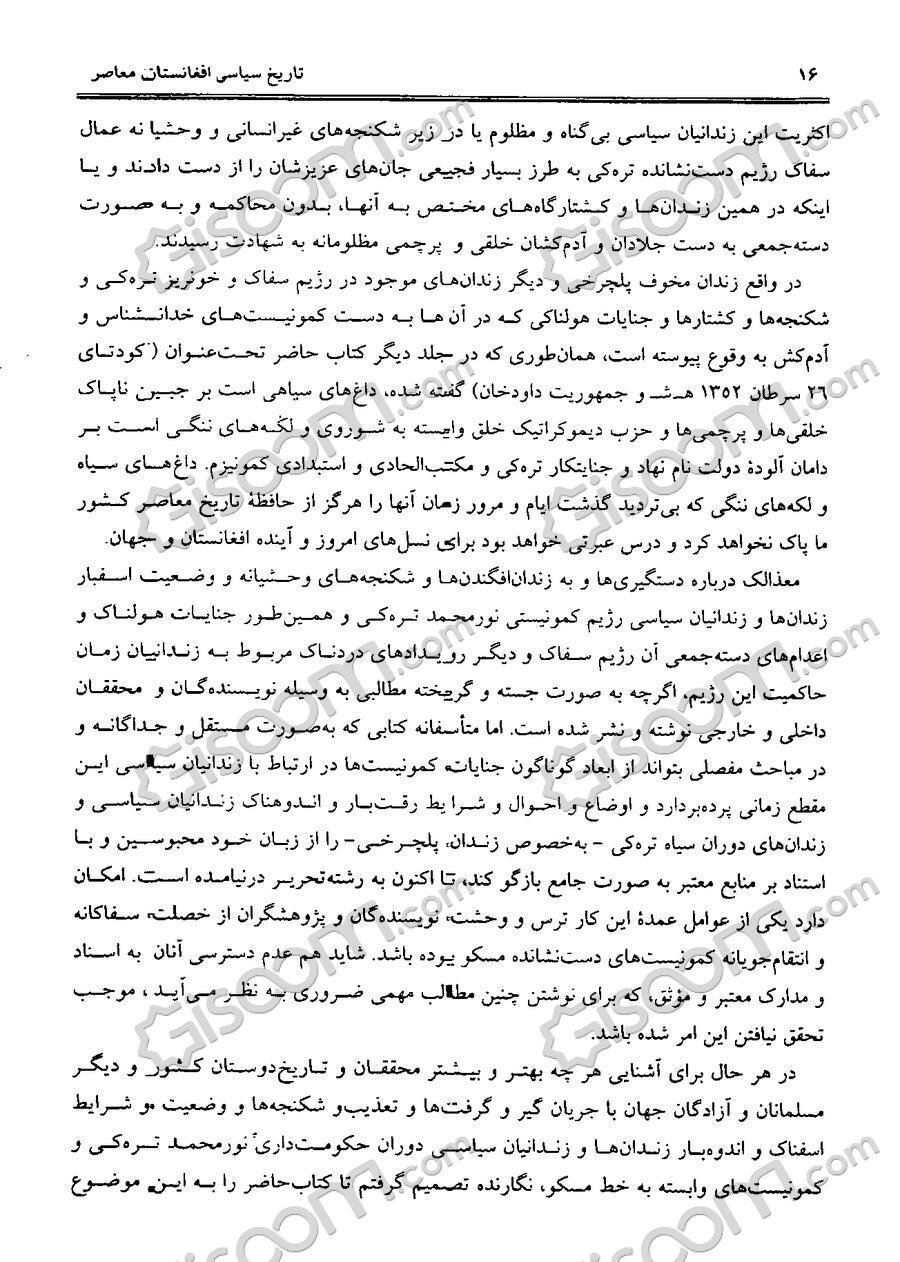 ۱۶
تاریخ سیاسی افغانستان معاصر
اکثریت این زندانیان سیاسی بی‌گناه و مظلوم یا در زیر شکنجه‌های غیرانسانی و وحشیا نه عمال
سفاک رژیم دست‌نشانده تره‌کی به طرز بسیار فجیعی جان‌های عزیزشان را از دست دادند و یا
اینکه در همین زندان‌ها و کشتارگاه‌های مختص به آنها، بدون محاکمه و به صورت
دسته‌جمعی به دست جلادان و آدم‌کشان خلقی و پرچمی مظلومانه به شهادت رسیدند.
در واقع زندان مخوف پلچرخی و دیگر زندان‌های موجود در رژیم سفاک و خونریز تره‌کی و
شکنجه‌ها و کشتارها و جنایات هولناکی که در آن ها به دست کمونیست‌های خدانشناس و
آدم‌کش به وقوع پیوسته است، همان‌طوری که در جلد دیگر کتاب حاضر تحت‌عنوان (کودتای
۲۶ سرطان ۱۳۵۲ هـ‌ش و جمهوریت داودخان) گفته شده، داغ‌های سیاهی است بر جبین ناپاک
خلقی‌ها و پرچمی‌ها و حزب دیموکراتیک خلق وابسته به شوروی و لکه‌های ننگی است بر
دامان آلودهٔ دولت نام نهاد و جنایتکار تره‌کی و مکتب‌الحادی و استبدادی کمونیزم. داغ‌های سیاه
و لکه‌های ننگی که بی‌تردید گذشت ایام و مرور زمان آنها را هرگز از حافظهٔ تاریخ معاصر کشور
ما پاک نخواهد کرد و درس عبرتی خواهد بود برای نسل‌های امروز و آینده افغانستان و جهان.
معذالک درباره دستگیری‌ها و به زندان‌افگندن‌ها و شکنجه‌های وحشیانه و وضعیت اسفبار
زندان‌ها و زندانیان سیاسی رژیم کمونیستی نورمحمد تره‌کی و همین‌طور جنایات هولناک و
اعدام‌های دسته‌جمعی آن رژیم سفاک و دیگر رویدادهای دردناک مربوط به زندانیان زمان
حاکمیت این رژیم، اگرچه به صورت جسته و گریخته مطالبی به وسیله نویسنده‌گان و محققان
داخلی و خارجی نوشته و نشر شده است. اما متأسفانه کتابی که به‌صورت مستقل و جداگانه و
در مباحث مفصلی بتواند از ابعاد گوناگون جنایات کمونیست‌ها در ارتباط با زندانیان سیاسی این
مقطع زمانی پرده‌بردارد و اوضاع و احوال و شرایط رقت‌بار و اندوهناک زندانیان سیاسی و
زندان‌های دوران سیاه تره‌کی - به‌خصوص زندان، پلچرخی- را از زبان خود محبوسین و با
استناد بر منابع معتبر به صورت جامع بازگو کند، تا اکنون به رشته‌تحریر درنیامده است. امکان
دارد یکی از عوامل عمدهٔ این کار ترس و وحشت نویسنده‌گان و پژوهشگران از خصلت سفاکانه
و انتقام‌جویانه کمونیست‌های دست‌نشانده مسکو بوده باشد. شاید هم عدم دسترسی آنان به اسناد
و مدارک معتبر و مؤثق، که برای نوشتن چنین مطالب مهمی ضروری به نظر می‌آید، موجب
تحقق نیافتن این امر شده باشد.
در هر حال برای آشنایی هر چه بهتر و بیشتر محققان و تاریخ‌دوستان کشور و دیگر
مسلمانان و آزادگان جهان با جریان گیر و گرفت‌ها و تعذیب‌و شکنجه‌ها و وضعیت و شرایط
اسفناک و اندوه‌بار زندان‌ها و زندانیان سیاسی دوران حکومت‌داری نورمحمد تره‌کی و
کمونیست‌های وابسته به خط مسکو، نگارنده تصمیم گرفتم تا کتاب‌حاضر را به این موضوع
Gisoom.com
Gisoom.com
Gisoom.com
Gisoom.com
Gisoom.com
Gisoom.com
Gisoom.com
Gisoom.com
Gisoom.com
Gisoom.com